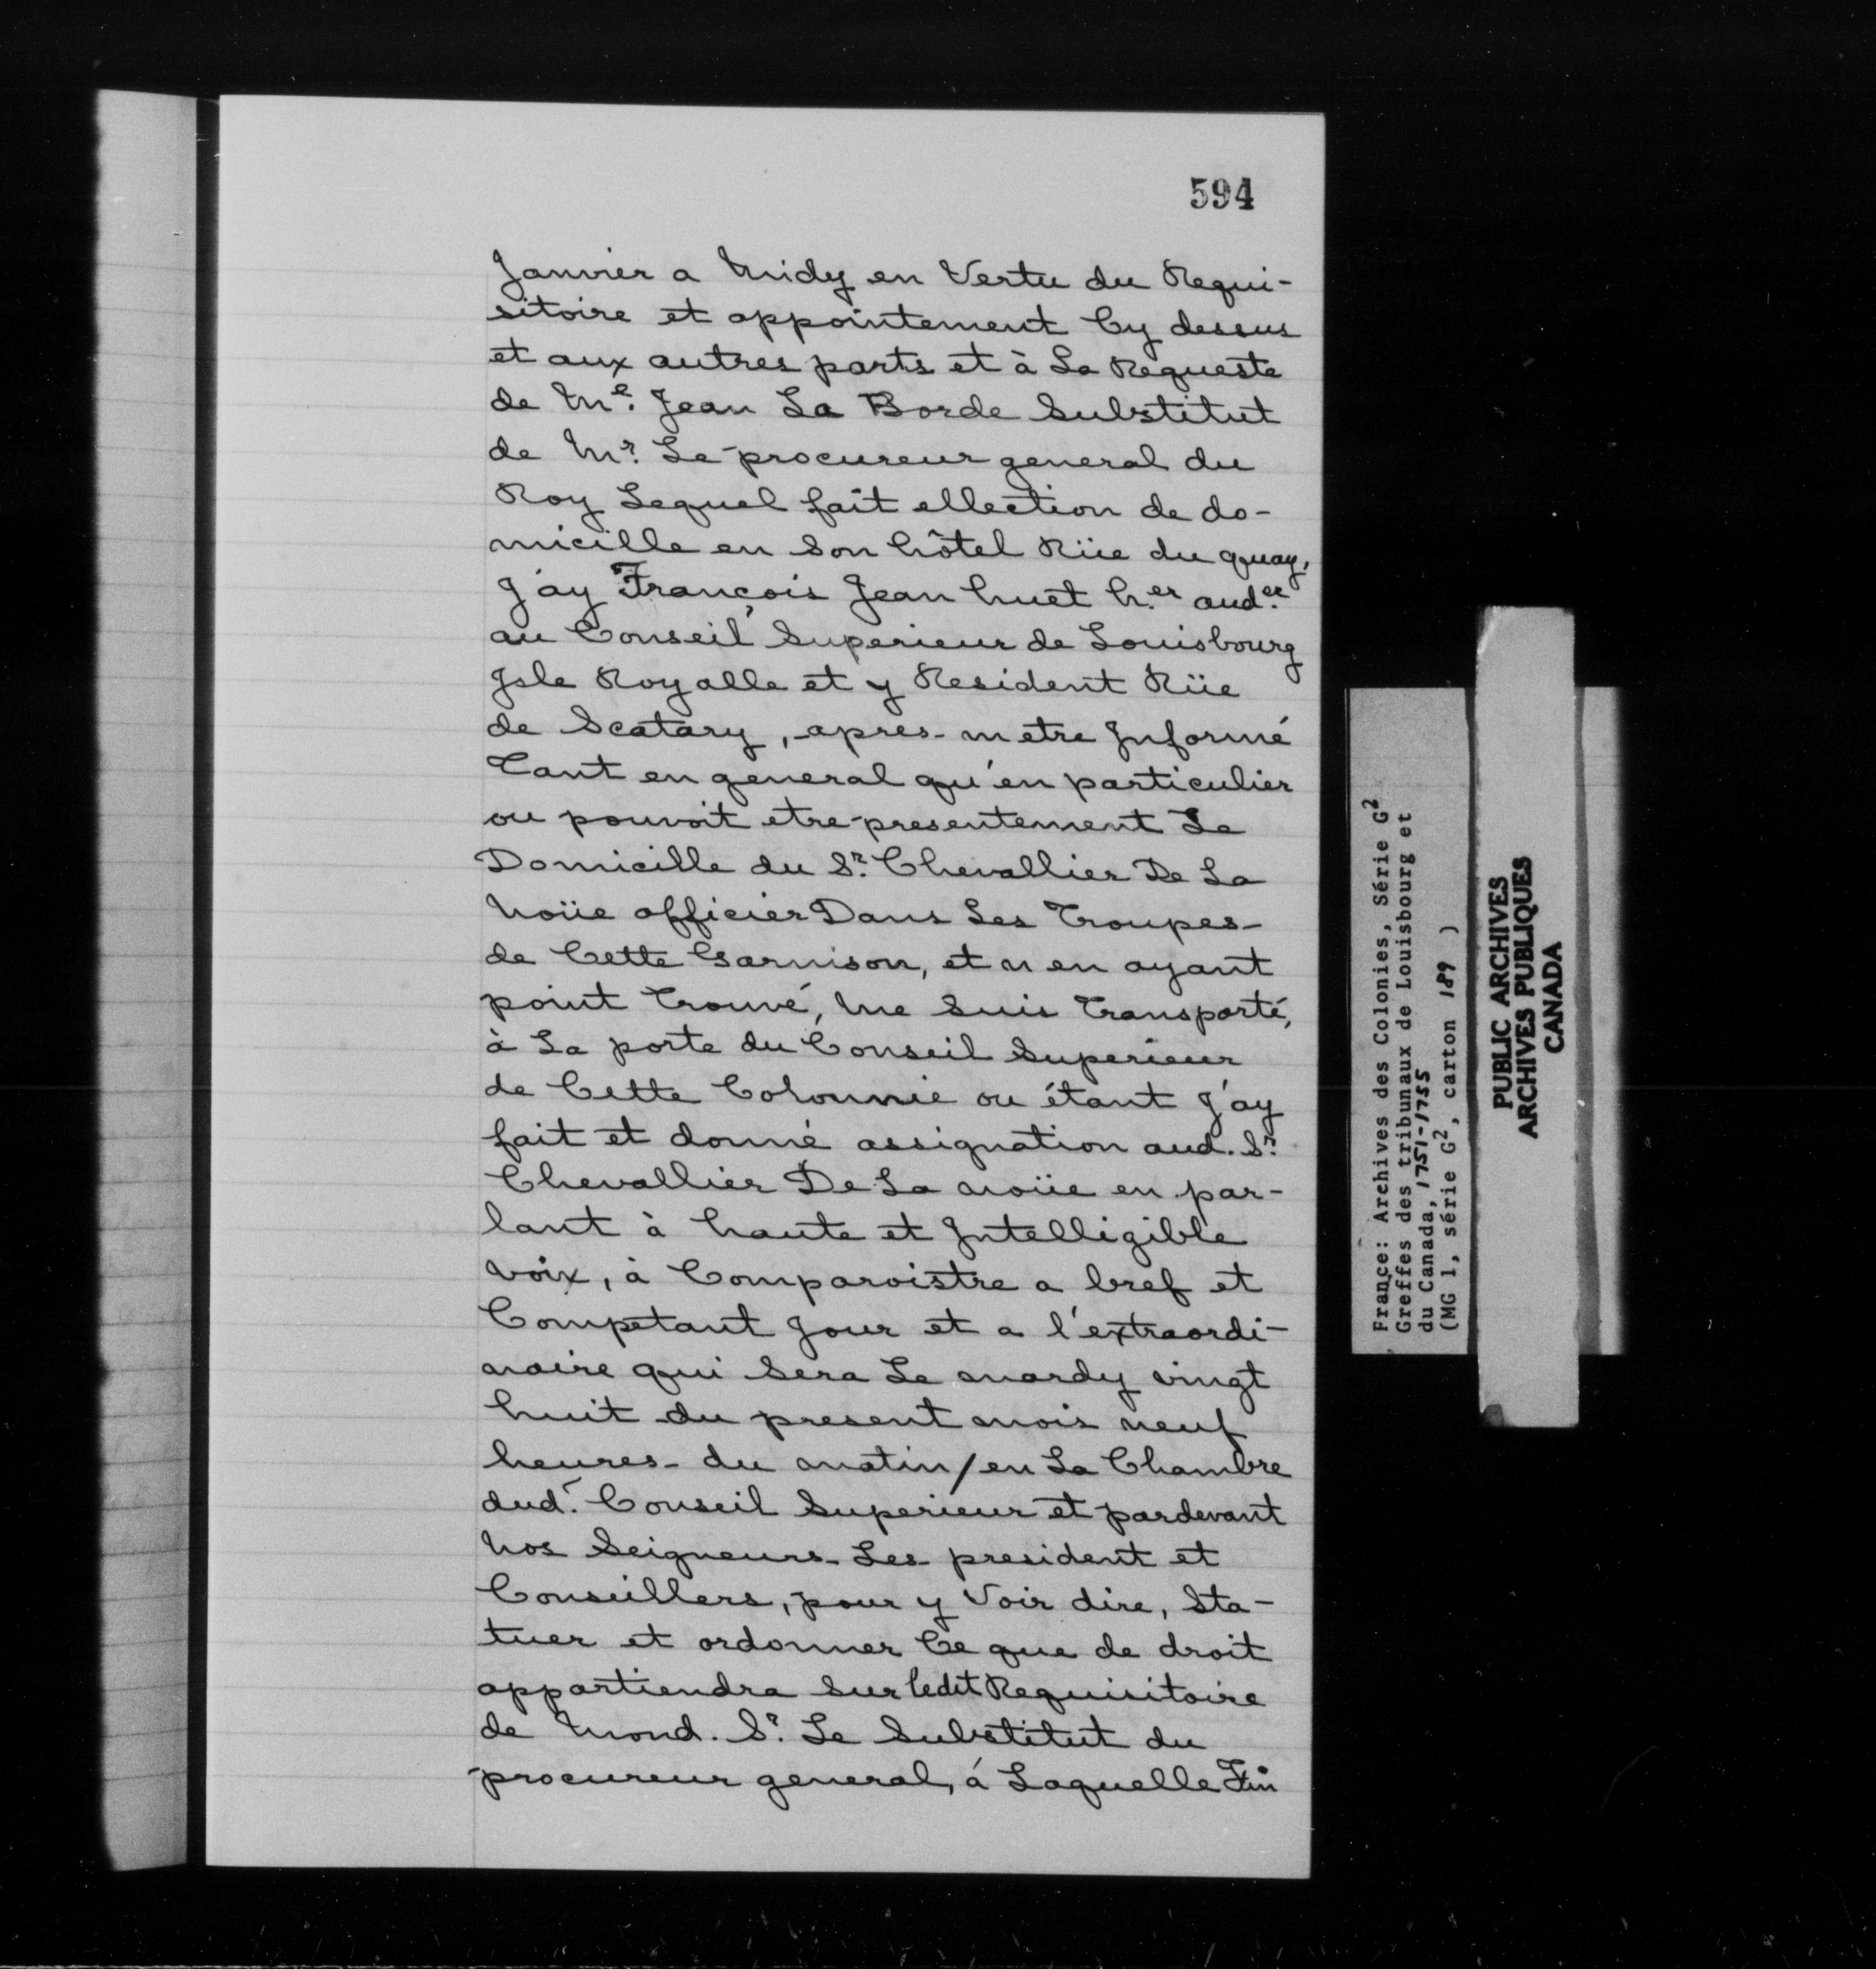 594
Janvier a Midy en Vertu du Requi-
sitoire et appointement Cy dessus
et aux autres parts et à La Requeste
de Me. Jean La Borde Substitut
de Mr. Le procureur general du
Roy Lequel fait ellection de do-
micille en Son hôtel Rüe du quay,
J'ay François Jean huet h.er aud.er
au Conseil Superieur de Louisbourg
Jsle Royalle et y Resident Rüe
de Scatary, apres metre Jnformé
Tant en general qu'en particulier
ou pouvoit etre presentement Le
Domicille du Sr. Chevallier De La
Noüe officier Dans Les Troupes
de Cette Garnison, et n en ayant
point Trouvé, Me Suis Transporté,
à La porte du Conseil Superieur
de Cette Colonnie ou étant J'ay
fait et donné assignation aud. Sr.
Chevallier De La noüe en par-
lant à haute et Jntelligible
Voix, à Comparoistre a bref et
Competant Jour et a l'extraordi-
naire qui Sera Le mardy vingt
huit du present mois neuf
heures du matin/en La Chambre
dud. Conseil Superieur et pardevant
Nos Seigneurs Les president et
Conseillers, pour y Voir dire, Sta-
tuer et ordonner Ce que de droit
appartiendra Sur ledit Requisitoire
de Mond. Sr. Le Substitut du
procureur general, à Laquelle Fin
France: Archives des Colonies, Série G2
Greffes des tribunaux de Louisbourg et
du Canada, 1751-1755
(MG 1, série G2, carton 189 )
PUBLIC ARCHIVES
ARCHIVES PUBLIQUES
CANADA